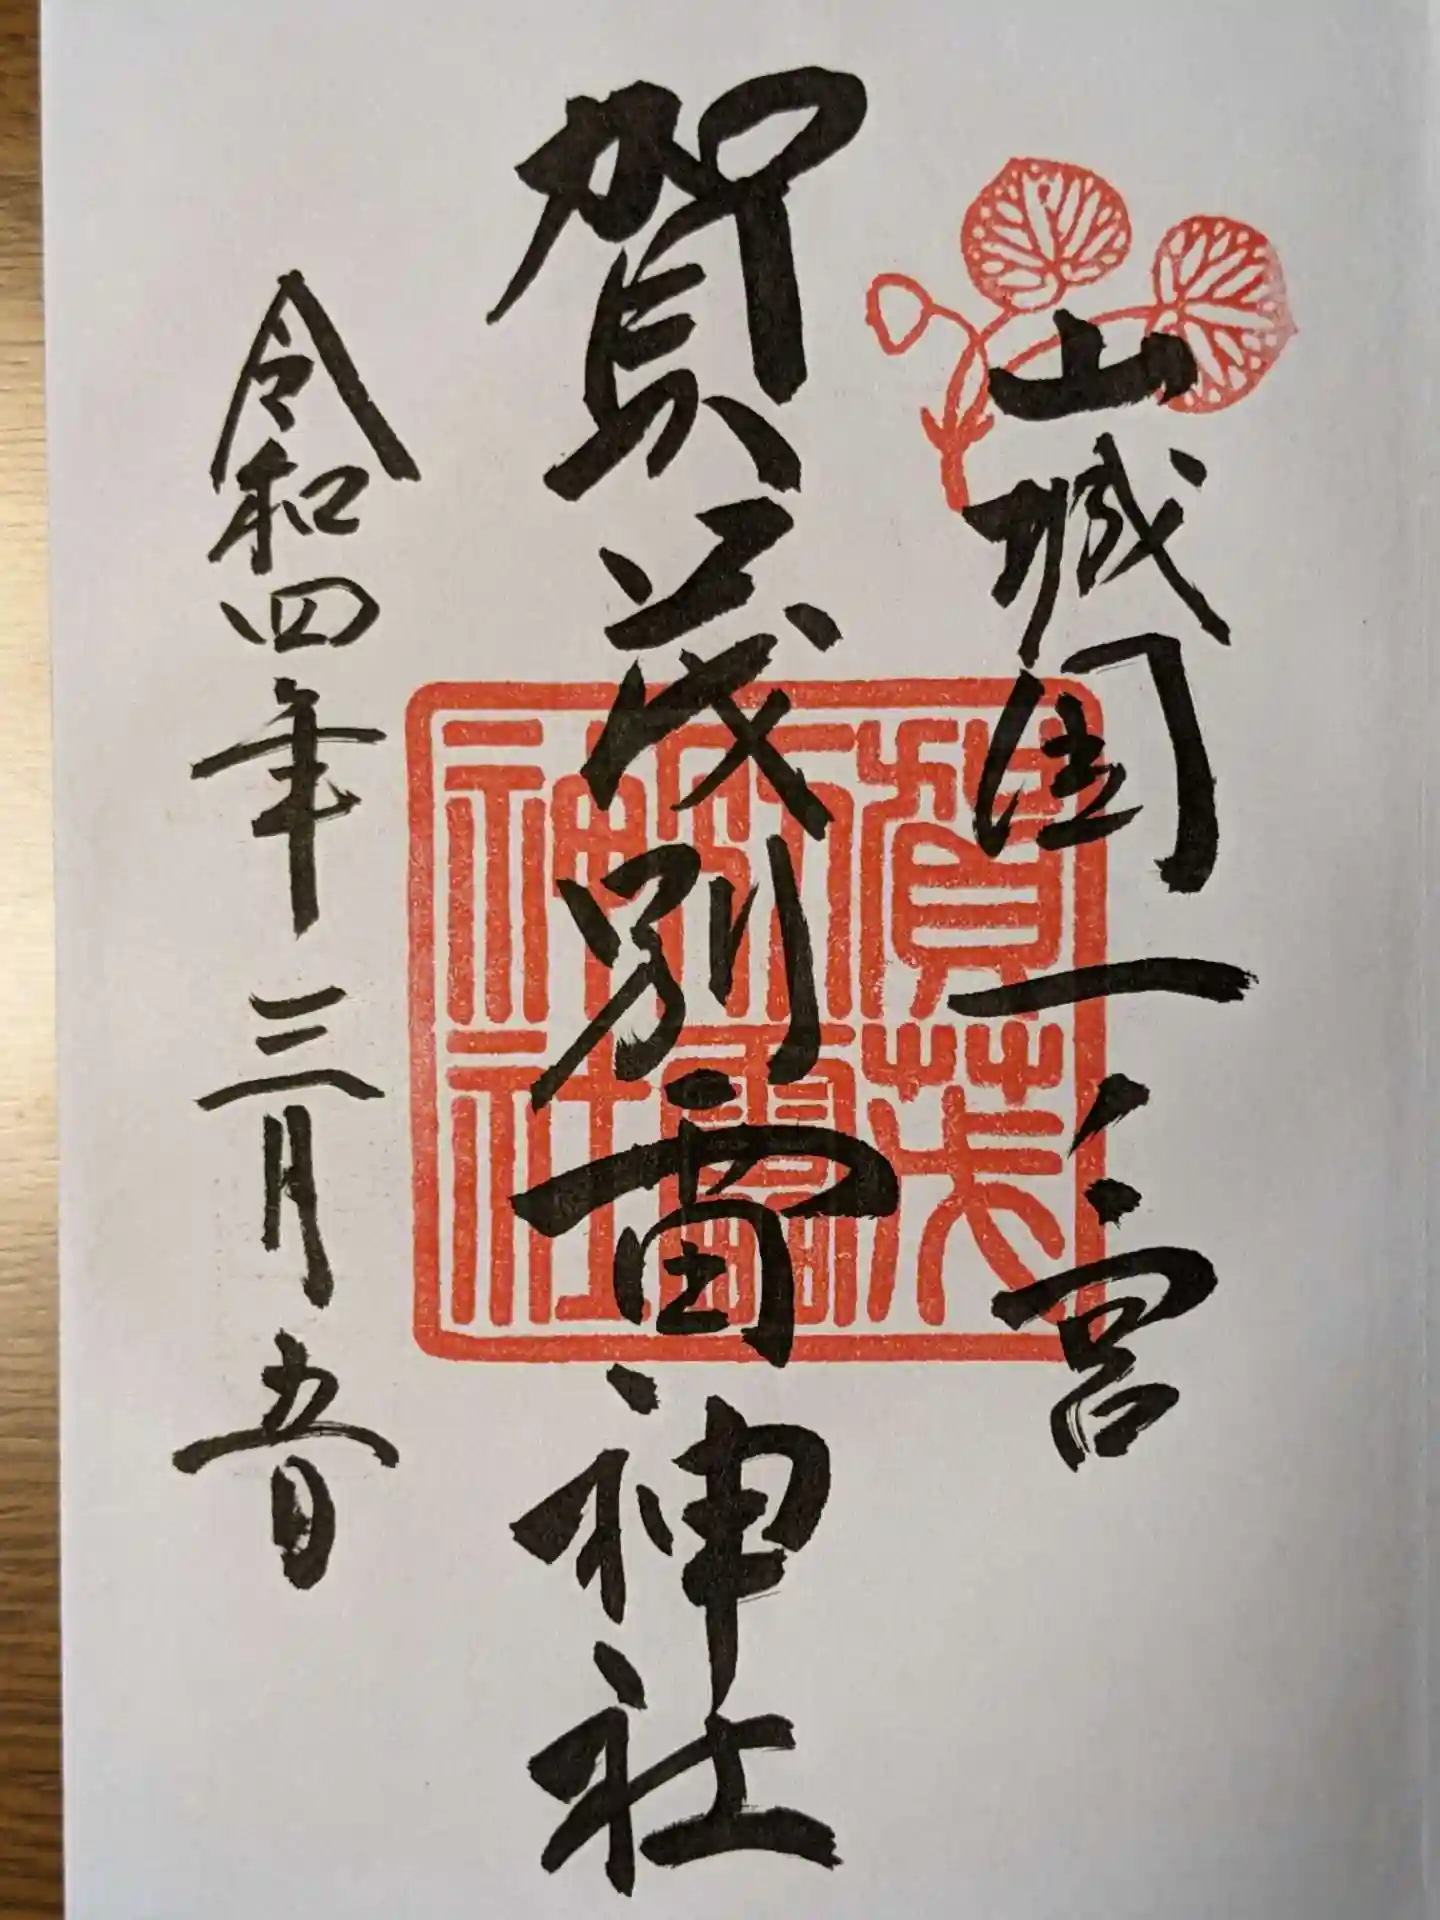 山城国一之宮
賀茂別雷神社
賀茂
別雷
神社
令和四年三月五日